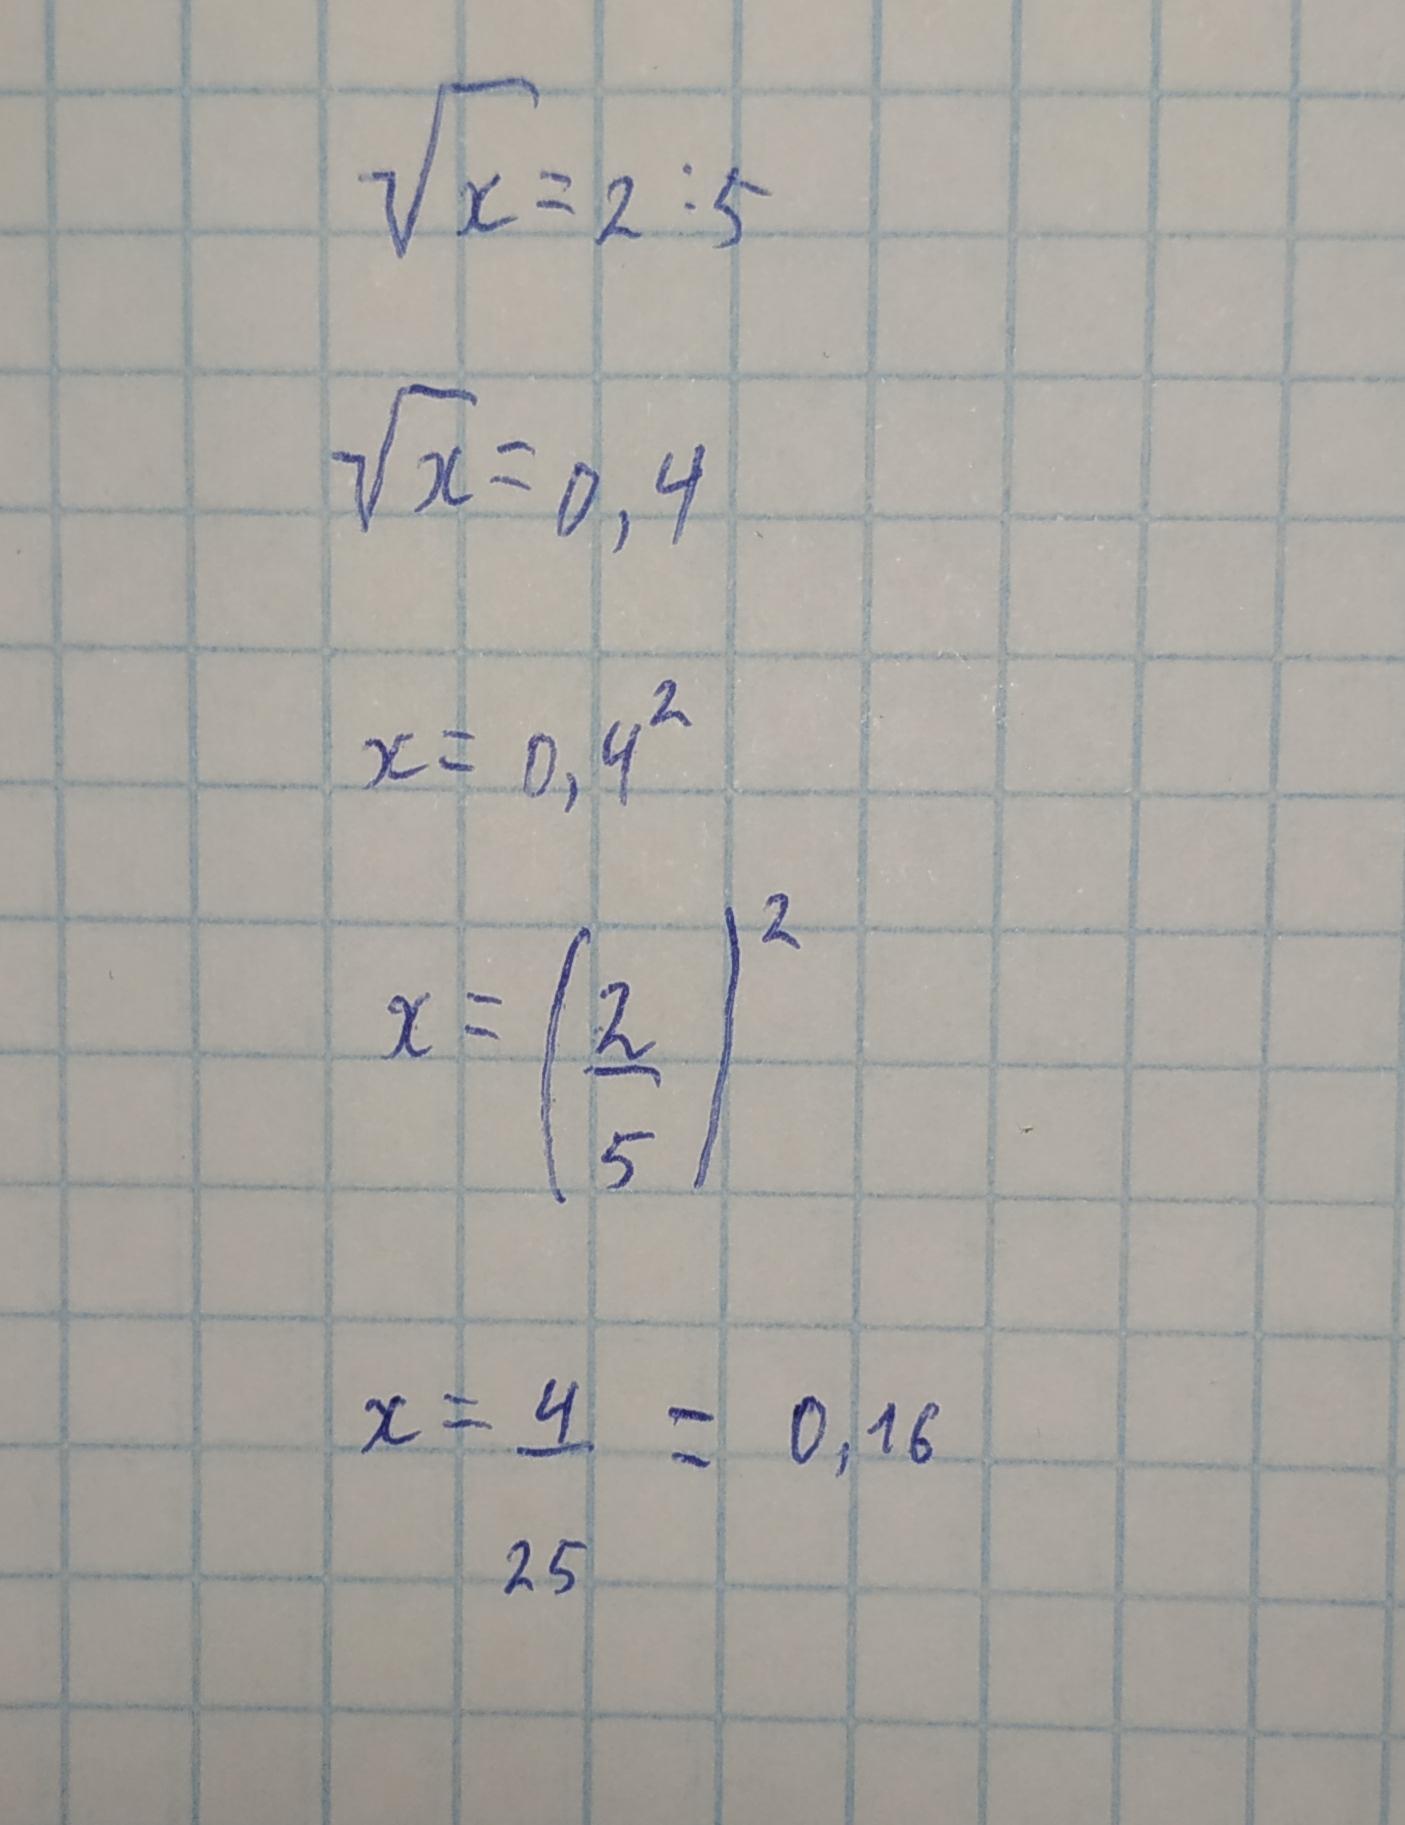 √x = 2 : 5
√x = 0,4
x = 0,4²
x = (2/5)²
x = 4/25 = 0,16